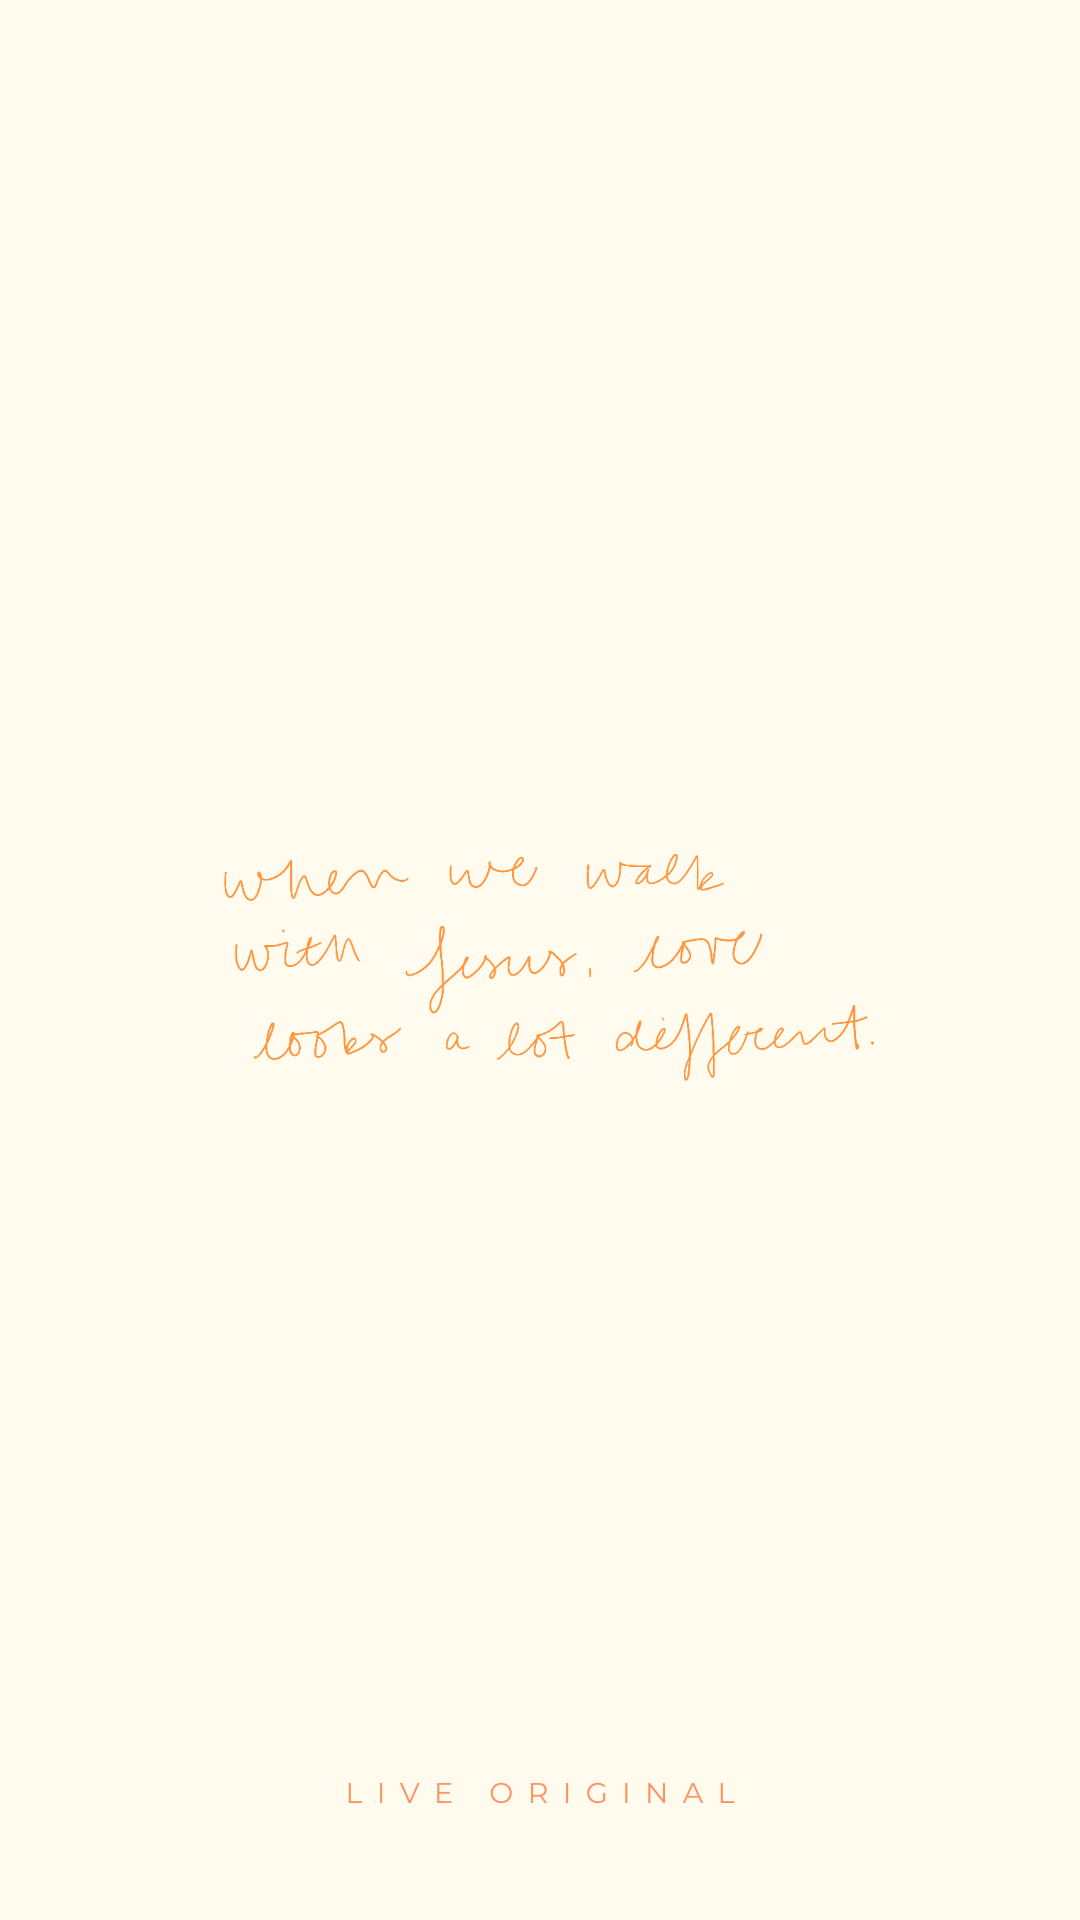 when we walk
with Jesus, love
looks a lot different.
LIVE ORIGINAL